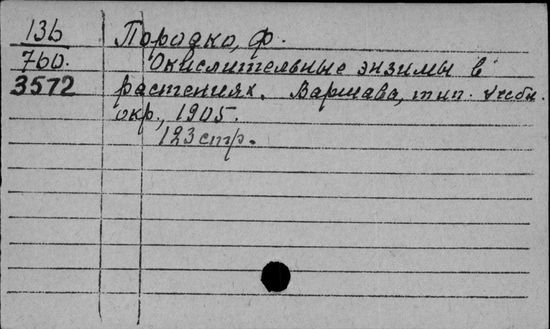 136
760.
3572
Породко, Ф.
Окислительные энзимы в
растениях. Варшава, тип. Учебн.
окр., 1905.
123 стр.